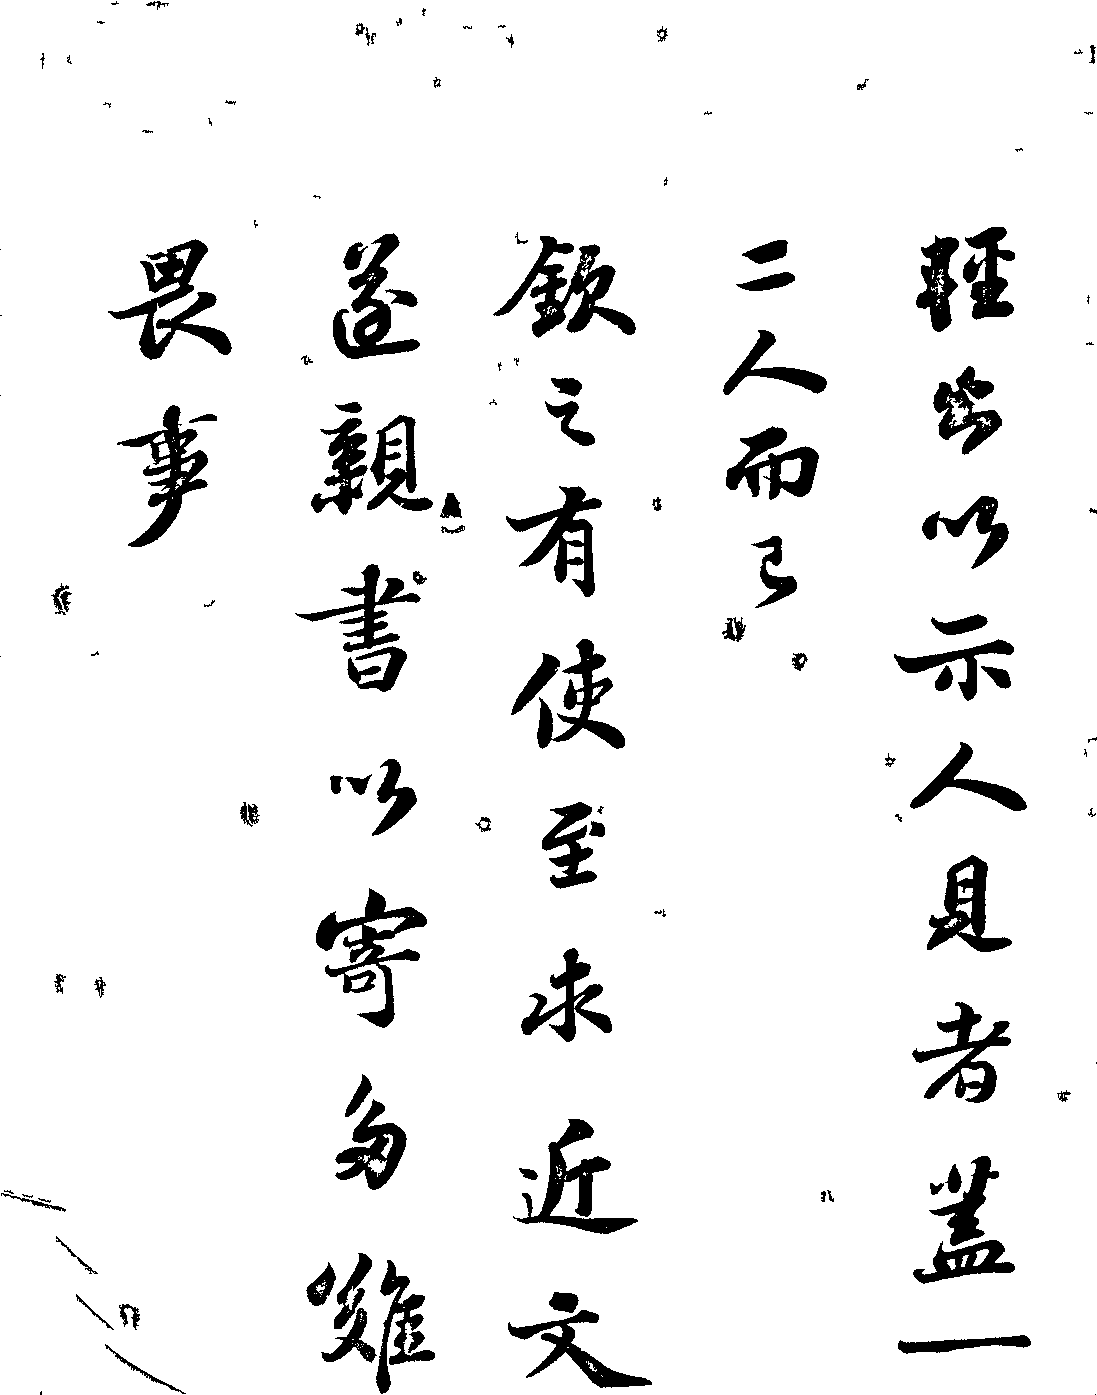 輕出以示人見者蓋一
二人而已
欽之有使至求近文
遂親書以寄多難
畏事